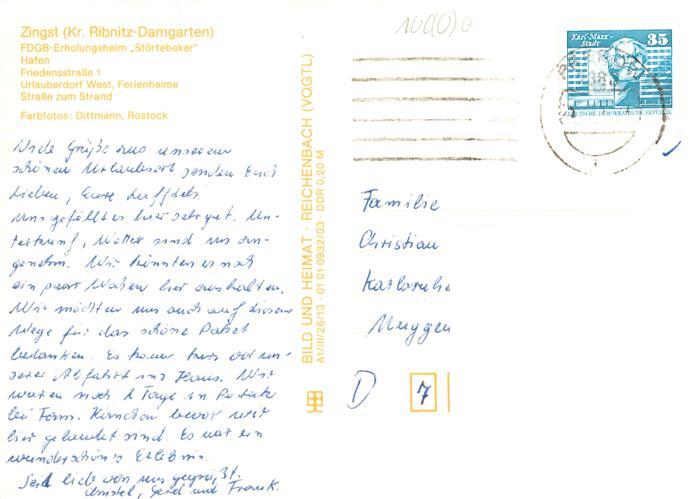 Zingst (Kr. Ribnitz-Damgarten)
FDGB-Erholungsheim „Störtebeker"
Hafen
Friedensstraße 1
Urlauberdorf West, Ferienheime
Straße zum Strand
Farbfotos: Dittmann, Rostock
Viele Grüße aus unserem
schönen Urlaubsort senden Euch
Lieben, Eure
Uns gefällt es hier sehr gut. Un-
terkunft, Wetter sind uns an-
genehm. Wir könnten es noch
ein paar Wochen hier aushalten.
Wir möchten uns auch auf diesem
Wege für das schöne Paket
bedanken. Es kam kurz vor un-
serer Abfahrt ins Haus. Wir
waren noch 2 Tage in
bei Fam. bevor wir
hier gelandet sind. Es war ein
wunderschönes Erlebnis.
Seid lieb von uns gegrüßt.
Gerd und Frank.
BILD UND HEIMAT · REICHENBACH (VOGTL)
A1/III/26/13 · 01 01 0932/03 · DDR 0,20 M
Karl-Marx-
Stadt
35
DEUTSCHE DEMOKRATISCHE REPUBLIK
Familie
Christian
Karlsruhe
Muggen
D 7